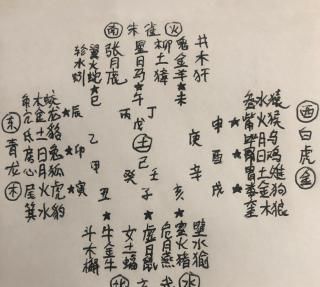 南 朱雀 火
翼火蛇 张月虎 星日马 柳土獐 鬼金羊 井木犴
轸水蚓
巳 午 未
丙 丁
戊 土 己
东 青龙 木
角木蛟
亢金龙
氐土
房日兔
心月狐
尾火虎
箕水豹
辰 卯 寅
乙 甲
庚 辛
申 酉 戌
西 白虎 金
参水猿
觜火猴
毕月乌
昴日鸡
胃土雉
娄金狗
奎木狼
癸 壬
丑 子 亥
斗木獬 牛金牛 女土蝠 虚日鼠 危月燕 火猪 壁水
水